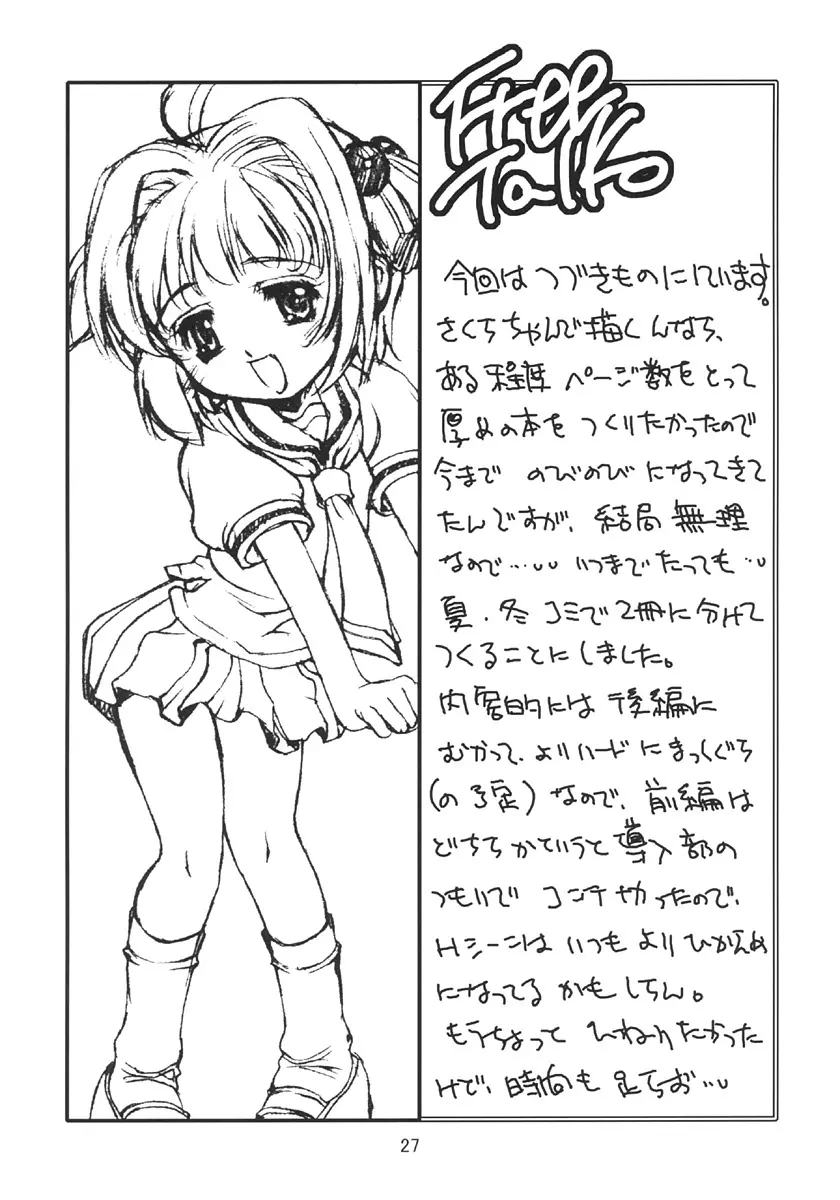 Free
Talk
今回はつづきものにています。
さくらちゃんで描くんなら、
ある程度 ページ数をとって
厚めの本を つくりたかったので
今まで のびのび になってきて
たんですが、結局 無理
なので…… いつまでたっても…
夏・冬 コミで2冊に分けて
つくることにしました。
内容的には後編に
むかって、よりハードにまっしぐら
(の予定) なので、前編は
どちらかていうと導入部の
つもりで コンテやったので、
Hシーンは いつも より ひかえめ
になってる かも しらん。
もうちょっと ひねりたかった
けど、時間も 足らず…
27